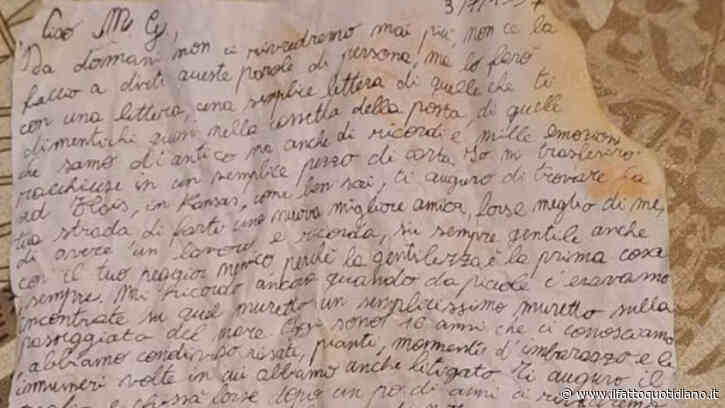 3/7/1997
Ciao M. G.,
Da domani non ci rivedremo mai più, non ce la
faccio a dirti queste parole di persona, ma lo farò
con una lettera, una semplice lettera di quelle che ti
dimentichi quasi nella cassetta della posta, di quelle
che sanno d'antico ma anche di ricordi e mille emozioni
racchiuse in un semplice pezzo di carta. Io mi trasferirò
ad in Kansas, come ben sai, ti auguro di trovare la
tua strada di farti una nuova migliore amica, forse meglio di me,
di avere un lavoro e ricorda, sii sempre gentile anche
con il tuo peggior nemico perché la gentilezza è la prima cosa
sempre. Mi ricordo ancora quando da piccole c'eravamo
incontrate su quel muretto un semplicissimo muretto sulla
passeggiata del mare. Così sono 16 anni che ci conosciamo
abbiamo condiviso risate, pianti, momenti d'imbarazzo e le
innumeri volte in cui abbiamo anche litigato. Ti auguro il
chissà forse dopo un po di anni ci
© www.ilfattoquotidiano.it